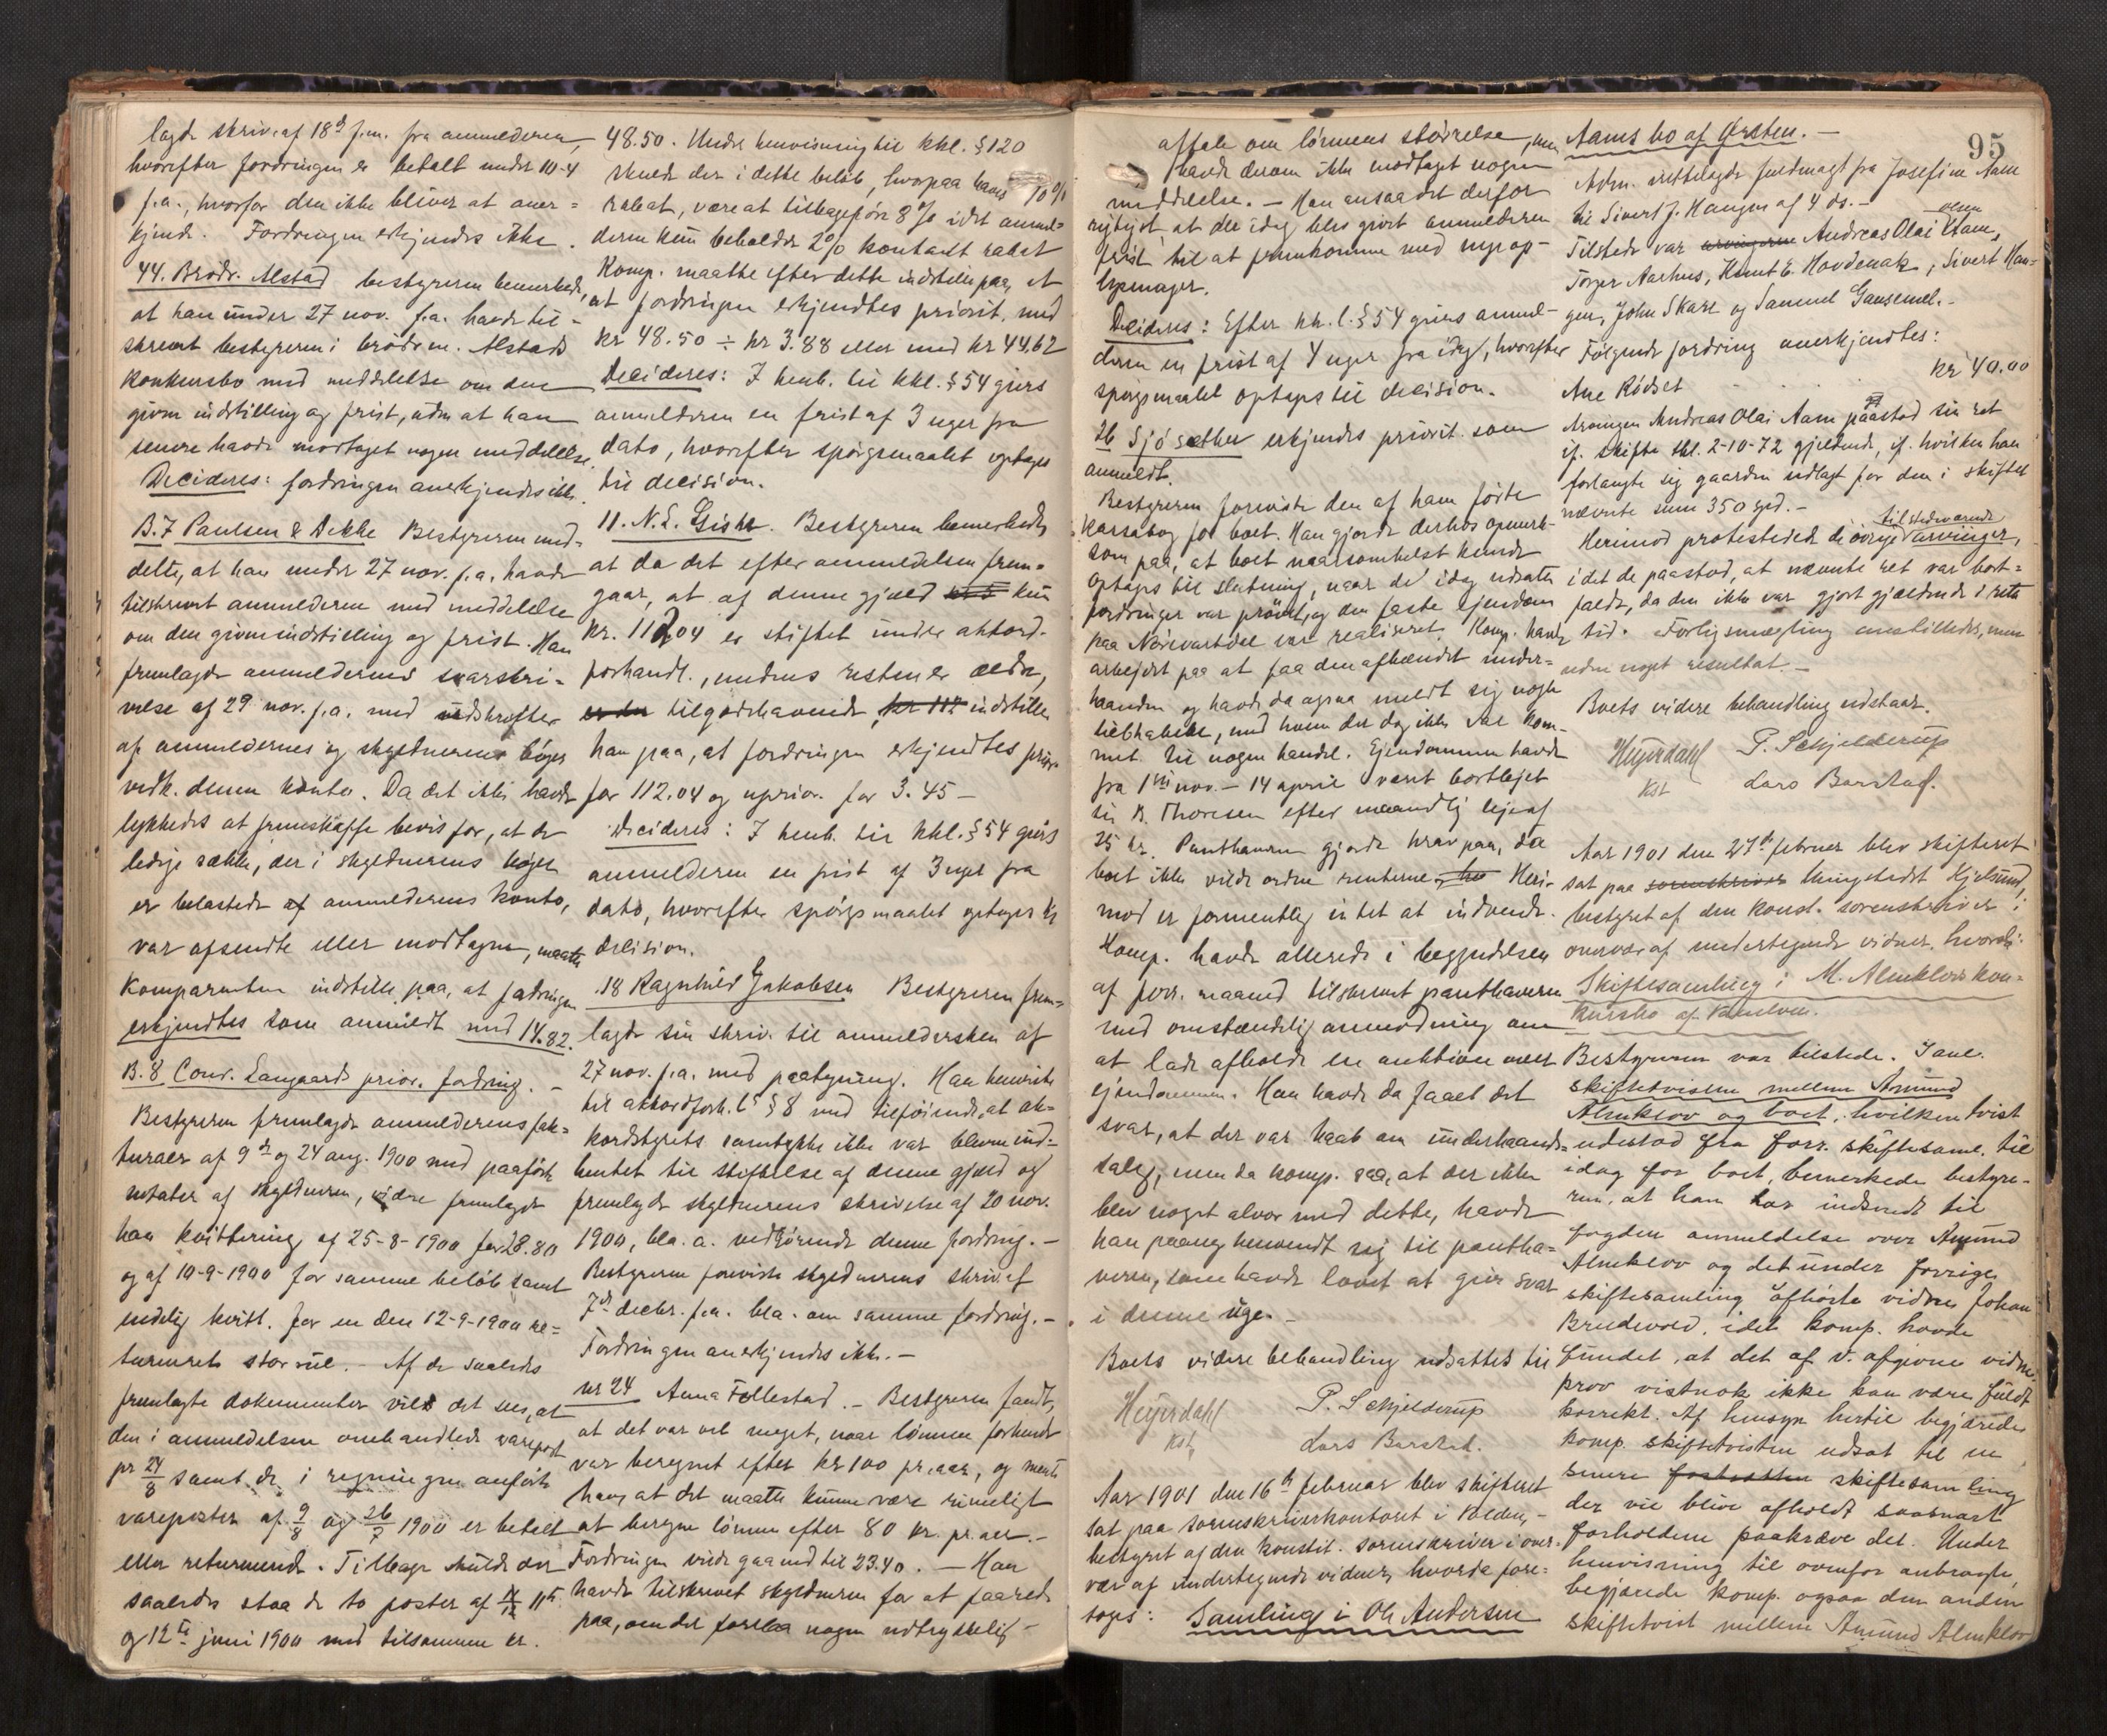 lagde skriv. af 18de f.m. fra anmelderen,
hvorefter fordringen er betalt under 10-4
f.a., hvorfor den ikke bliver at aner-
kjende. Fordringen erkjendes ikke.
44. Brödr. Alstad bestyreren bemerkede,
at han under 27 nov. f.a. havde til-
skrevet bestyreren i brödrene Alstads
konkursbo med meddelelse om den
givne indstilling og frist, uden at han
senere havde modtaget nogen meddelelse.
Decideres: fordringen anerkjendes ikke.
B.7 Paulsen & Dekke Bestyreren med-
delte, at han under 27 nov. f.a. havde
tilskrevet anmelderen med meddelelse
om den givne indstilling og frist. Han
fremlagde anmelderens svarskri-
velse af 29 nov. f.a. med udskrifter
af anmeldernes og skyldnerens böger
vedk. denne konto. Da det ikke havde
lykkedes at fremskaffe bevis for, at de
ledige sække, der i skyldnerens böger
er belastede af anmelderens konto,
var afsendte eller modtagne, maatte
komparenten indstille paa, at fordringen
erkjendtes som anmeldt med 14.82.
B.8 Conr. Langaards prior. fordring. -
Bestyreren fremlagde anmelderens fak-
turaer af 9de og 24 aug. 1900 med paaførte
notater af skyldneren, videre fremlagde
han kvittering af 25-8-1900 for 28.80
og af 10-9-1900 for samme beløb samt
endelig kvitt. for en den 12-9-1900 re-
tourneret . - Af de saaledes
fremlagte dokumenter vil det sees, at
den i anmeldelsen omhandlede varepost
pr 24/8 samt de i regningen anførte
vareposter af 9/8 og 26/7 1900 er betalt
eller returnerede. Tilbage skulde der
saaledes staa de to poster af 11te
og 12te juni 1900 med tilsammen kr.
48.50. Under henvisning til kkl. §120
skulde der i dette beløb, hvorpaa haves 10%
rabat, være at tilbageføre 8% idet anmel-
deren kun beholder 2% kontant rabat
Komp. maatte efter dette indstille paa, at
at fordringen erkjendtes priorit. med
kr 48.50 ÷ kr 3.88 eller med kr 44.62
Decideres: I henh. til kkl. §54 gives
anmelderen en frist af 3 uger fra
dato, hvorefter spörgsmaalet optages
til decision.
11. N. L. Bestyreren bemerkede,
at da det efter anmeldelsen frem-
gaar, at af denne gjæld kun
kr. 112.04 er stiftet under akkord-
forhandl., medens resten er ældre,
er der tilgodehavende, kr 112 indstiller
han paa, at fordringen erkjendtes prior.
for 112.04 og uprior. for 3.45 -
Decideres: I henh. til kkl. §54 gives
anmelderen en frist af 3 uger fra
dato, hvorefter spörgsmaalet optages til
decision.
18 Ragnhild Jakobsen Bestyreren frem-
lagde sin skriv. til anmeldersken af
27 nov. f.a. med paategning. Han henviste
til akkordforh.l.s §8 med tilføiende, at ak-
kordstyrets samtykke ikke var bleven ind-
hentet til stiftelse af denne gjæld og
fremlagde skyldnerens skrivelse af 20 nov.
1900, bla. a. vedkörende denne fordring. -
Bestyreren foreviste skyldnerens skriv. af
7de decbr. f.a. bla. om samme fordring. -
Fordringen anerkjendes ikke. -
nr 24 Anna Follestad. - Bestyreren fandt,
at det var vel meget, naar lönnen forhenv.
var beregnet efter kr 100 pr. aar, og mente
han, at det maatte kunne være rimeligt
at beregne lönnen efter 80 kr. pr. aar. -
Fordringen vilde gaa ned til 23.40. - Han
havde tilskrevet skyldneren for at faa rede
paa, om der forelaa nogen udtrykkelig
aftale om lönnens størrelse, men
havde derom ikke modtaget nogen
meddelelse. - Han ansaa det derfor
rigtigst, at der idag blev givet anmelderen
frist til at fremkomme med nye op-
lysninger.
Decideres: Efter kk. l. §54 gives anmel-
deren en frist af 4 uger fra idag, hvorefter
spörgsmaalet optages til decision.
26 Sjösæther erkjendes priorit. som
anmeldt.
Bestyreren foreviste den af ham førte
kassabog for boet. Han gjorde derhos opmerk-
som paa, at boet naarsomhelst kunde
optages til slutning, naar de idag udsatte
fordringer var prövet, og den faste ejendom
paa var realiseret. Komp. havde
arbejdet paa at faa den afhændet under-
haanden og havde da ogsaa meldt sig nogle
liebhabere, med hvem der dog ikke var kom-
met til nogen handel. Ejendommen havde
fra 1ste nov. - 14 april været bortlejet
til B. Thoresen efter maandlig leje af
25 kr. Panthaveren gjorde krav paa, da
boet ikke vilde ordne renterne, Heri-
mod er formentlig intet at indvende.
Komp. havde allerede i begyndelsen
af forr. maaned tilskrevet panthaveren
med omstændelig anmodning om
at lade afholde en auktion over
ejendommen. Han havde da faaet det
svar, at der var haab om underhaands-
salg, men da komp. saa, at der ikke
blev noget alvor med dette, havde
han paany henvendt sig til pantha-
veren, som havde lovet at give svar
i denne uge. -
Boets videre behandling udsattes til
Heyerdahl P. Schjelderup
kst Lars Barstad.
Aar 1901 den 16de februar blev skifteret
sat paa sorenskriverkontoret i Volden, -
bestyret af den konstit. sorenskriver i over-
vær af undertegnede vidner, hvorda fore-
toges: Samling i Ole Andersen
95
Aams bo af Ørsten. -
Adm. fremlagde fuldmagt fra Josefine Aam
til Sivert J. Haugen af 4 ds. -
Tilstede var arvingerne Andreas Olai Aam,
Torger Aarhus, Knut E. Hovdenak, Sivert Hau-
gen, John Skare og Samuel Gausemel. -
Følgende fordring anerkjendtes:
Ane Rödset kr 40.00
Arvingen Andreas Olai Aam paastod sin ret
if. skifte tkl. 2-10-72 gjeldende, if. hvilken han
forlangte sig gaarden udlagt for den i skiftet
nævnte sum 350 spd. -
tilstedeværende
Herimod protesterede de övrige arvinger,
idet de paastod, at nævnte ret var bort-
faldt, da den ikke var gjort gjældende i rette
tid. Forligsmægling anstilledes, men
uden noget resultat. -
Boets videre behandling udstaar.
Heyerdahl P. Schjelderup
kst Lars Barstad.
Aar 1901 den 27de februar blev skifteret
sat paa sorenskriver thingstedet Kjelsund,
bestyret af den konst. sorenskriver i
overvær af undertegnede vidner, hvorda:
Skiftesamling i M. Almklovs kon-
kursbo af Vanelven.
Bestyreren var tilstede. I anl.
skiftetvisten mellem Amund
Almklov og boet, hvilken tvist
udestod fra forr. skiftesaml. til
idag for boet, bemerkede bestyre-
ren, at han har indsendt til
fogden anmeldelse over Amund
Almklov og det under forrige
skiftesamling afhörte vidne Johan
Brudevold, idet komp. havde
fundet, at det af v. afgivne vidne-
prov vistnok ikke kan være fuldt
korrekt. Af hensyn hertil begjærede
komp. skiftetvisten udsat til en
senere fortsatte skiftesamling
der vil blive afholdt saasnart
forholdene paakræve det. Under
henvisning til ovenfor anbragte
begjærede komp. ogsaa den anden
skiftetvist mellem Amund Almklov